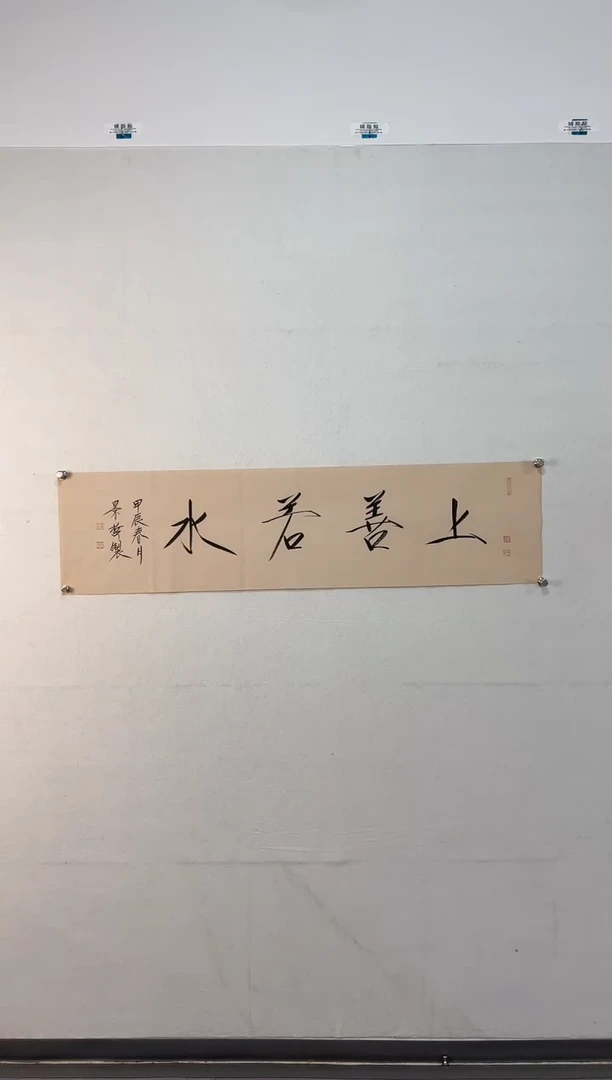 上善若水
甲辰春月
景哲製